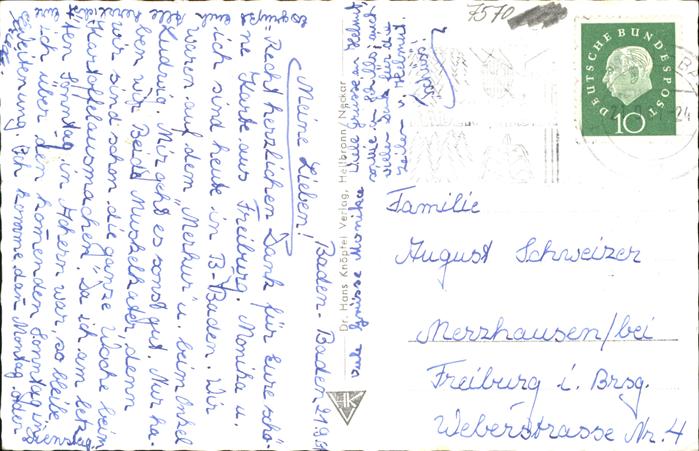 Baden-Baden 21.9.59
Meine Lieben!
Recht herzlichen Dank für Eure schö-
ne Karte aus Freiburg. Monika u.
ich sind heute in B.-Baden. Wir
waren auf dem "Merkur" u. beim Onkel
Ludwig. Mir geht es sonst gut. Nur ha-
ben wir Beide Muskelkater, denn
wir sind schon die ganze Woche beim
Kartoffelausmachen. Da ich am letz-
ten Sonntag in Achern war, so bleibe
ich über den komenden Sonntag in
Ich komme dan Montag oder
Dienstag
Es grüßt Euch Alle
Viele Grüsse Monika
Viele Grüsse an Helmut,
vielen Dank für die
Zeilen v. Helmut.
Dr. Hans Knöpfel Verlag, Heilbronn/Neckar
HK
7570
DEUTSCHE BUNDESPOST
10
Familie
August Schweizer
Merzhausen/bei
Freiburg i. Brsg.
Weberstrasse Nr. 4